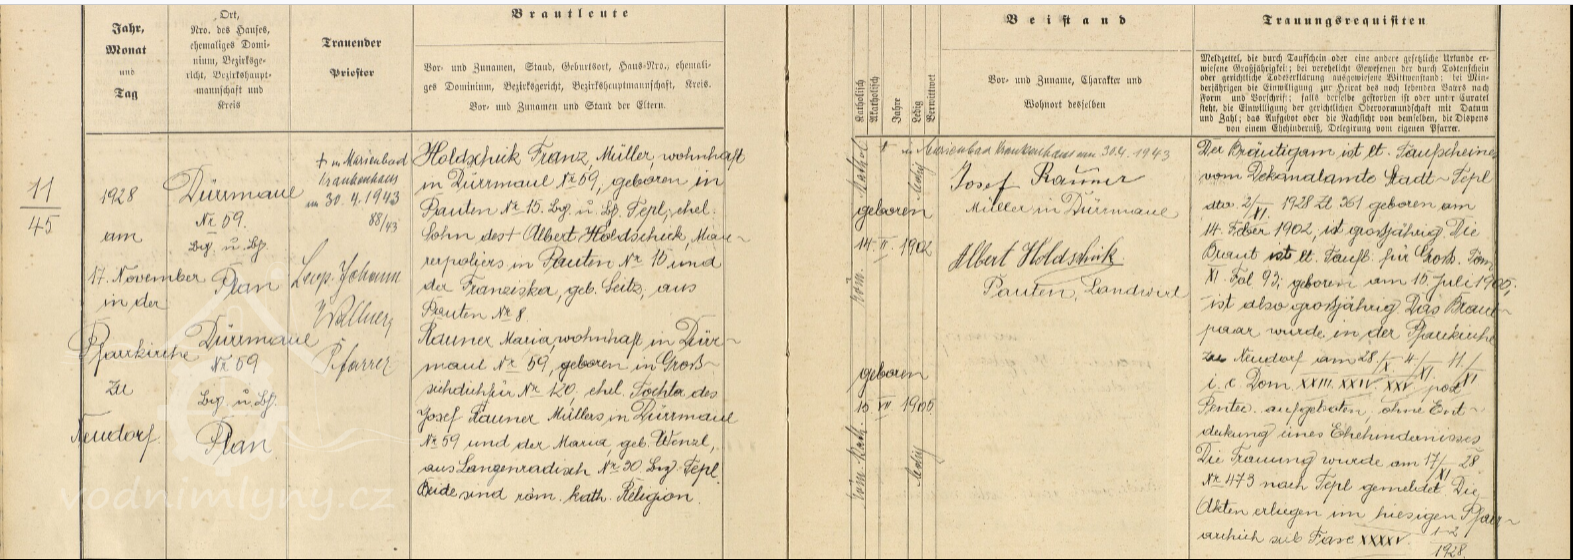 Jahr,
Monat
und
Tag
Ort,
Nro. des Hauses,
ehemaliges Domi-
nium, Bezirksge-
richt, Bezirkshaupt-
mannschaft und
Kreis
Trauender
Priester
Brautleute
Vor- und Zunamen, Stand, Geburtsort, Haus-Nro., ehemali-
ges Dominium, Bezirksgericht, Bezirkshauptmannschaft, Kreis.
Vor- und Zunamen und Stand der Eltern.
11
45
1928
am
17. November
in der
Pfarrkirche
zu
Neudorf.
Dürrmaul
Nr 59.
Bzg. u. Bh.
Plan
Dürrmaul
Nr 59
Bzg. u. Bh.
Plan
+ in Marienbad
Krankenhaus
am 30.4.1943
88/43
Johann
Wallner
Pfarrer
Holdschik Franz, Müller, wohnhaft
in Dürrmaul Nr 59, geboren in
Pauten Nr 15. Bzg. u. Bh. Tepl; ehel.
Sohn des + Albert Holdschick, Mau-
rerpoliers in Pauten Nr 10 und
der Franziska, geb. Seitz, aus
Pauten Nr 8.
Rauner Maria, wohnhaft in Dürr-
maul Nr 59, geboren in Groß-
sichdichfür Nr 120, ehel. Tochter des
Josef Rauner Müllers in Dürrmaul
Nr 59 und der Maria, geb. Wenzl,
aus Langenradisch Nr 30 Bzg. Tepl.
Beide sind röm. kath. Religion.
Katholisch
Akatholisch
Jahre
Ledig
Verwittwet
Beistand
Vor- und Zuname, Charakter und
Wohnort desselben
röm. kathol
geboren
14. II. 1902
ledig
geboren
15 VII 1905
röm.-kath.
ledig
+ in Marienbad Krankenhaus am 30.4.1943
Josef Rauner
Müller in Dürrmaul
Albert Holdschik
Pauten, Landwirt
Trauungsrequisiten
Meldzettel, die durch Taufschein oder eine andere gesetzliche Urkunde er-
wiesene Großjährigkeit; bei verehelicht Gewesenen der durch Todtenschein
oder gerichtliche Todeserklärung ausgewiesene Wittwenstand; bei Min-
derjährigen die Einwilligung zur Heirat des noch lebenden Vaters nach
Form und Vorschrift; falls derselbe gestorben ist oder unter Curatel
steht, die Einwilligung der gerichtlichen Obervormundschaft mit Datum
und Zahl; das Aufgebot oder die Nachsicht von demselben, die Dispens
von einem Ehehinderniß, Delegirung vom eigenen Pfarrer.
Der Bräutigam ist lt. Taufscheines
vom Dekanalamte Stadt-Tepl
dto. 2/XI. 1928 Zl 361 geboren am
14. Feber 1902, ist großjährig. Die
Braut ist lt. Taufb. für Groß. Tom
XI Fol 93; geboren am 15. Juli 1905;
ist also großjährig. Das Braut-
paar wurde in der Pfarrkirche
zu Neudorf am 28/X. 4/XI. 11/XI
i. e. Dom. XXIII. XXIV. XXV post
Pentec. aufgeboten, ohne Ent-
deckung eines Ehehindernisses
Die Trauung wurde am 17/XI 28
Nr 473 nach Tepl gemeldet. Die
Akten erliegen im hiesigen Pfarr-
archiv sub Fasc XXXXV. 1-2
1928
vodnimlyny.cz